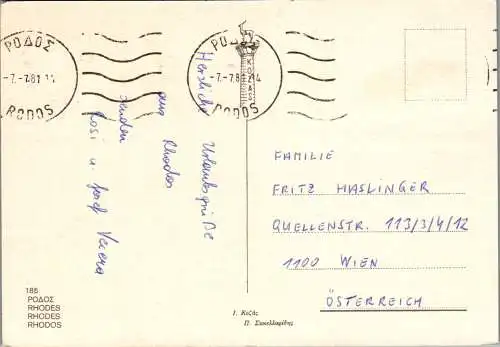 ΡΟΔΟΣ
-7.-7.81 14
RODOS
ΡΟΔΟΣ
-7.-7.81 14
RODOS
ΚΟΖΑΣ
Herzliche Urlaubsgrüße
aus Rhodos
senden
Rosi u. Josef
FAMILIE
FRITZ HASLINGER
QUELLENSTR. 113/3/4/12
1100 WIEN
ÖSTERREICH
185
ΡΟΔΟΣ
RHODES
RHODES
RHODOS
Ι. Κοζάς
Π. Συκελλαρίδης